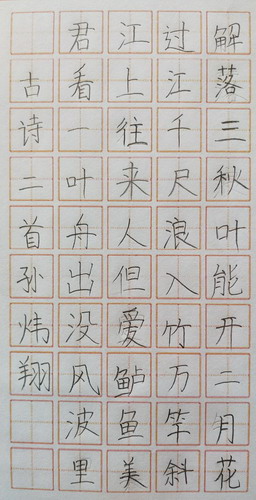 解落三秋叶能开二月花
过江千尺浪入竹万竿斜
江上往来人但爱鲈鱼美
君看一叶舟出没风波里
古诗二首孙炜翔